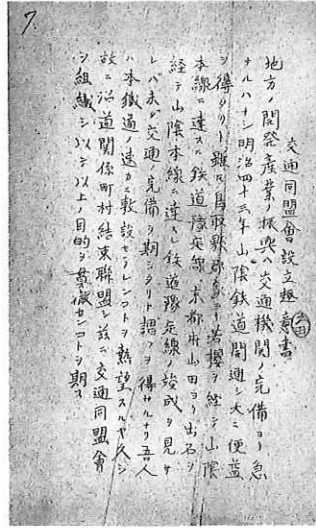 7.
交通同盟會設立趣意書
地方ノ開發産業ノ振興ハ交通機関ノ完備ヨリ急
ナルハナシ明治四十三年山陰鉄道開通シ大ニ便益
ヲ得タリト雖モ鳥取縣郡家ヨリ若櫻ヲ経テ山陰
本線ニ達スル鉄道豫定線京都市山田ヨリ出石ヲ
経テ山陰本線ニ達スル鉄道豫定線ノ竣成ヲ見サ
レバ未ダ交通ノ完備ヲ期シタリト謂フヲ得サルナリ吾人
ハ本鐵道ノ速カニ敷設セラレンコトヲ熱望スルヤ久シ
故ニ沿道関係町村結束聯盟シ茲ニ交通同盟會
ヲ組織シ以テ以上ノ目的ヲ貫徹センコトヲ期ス